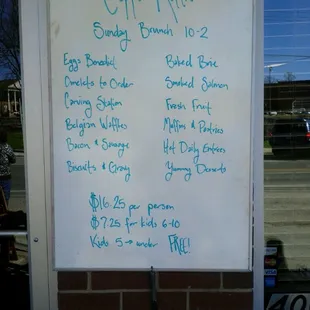 Sunday Brunch 10-2
Eggs Benedict
Omelets to Order
Carving Station
Belgian Waffles
Bacon & Sausage
Biscuits & Gravy
Baked Brie
Smoked Salmon
Fresh Fruit
Muffins & Pastries
Hot Daily Entrees
Yummy Desserts
$16.25 per person
$7.25 for kids 6-10
Kids 5 → under FREE!
40